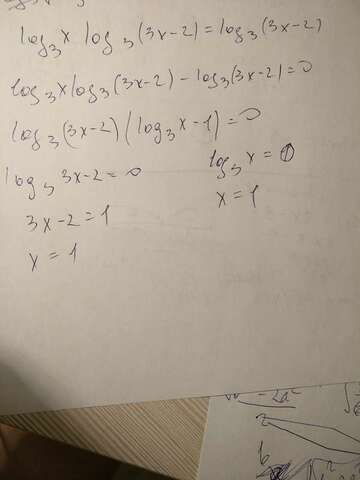 log₃x log₃(3x-2) = log₃(3x-2)
log₃x log₃(3x-2) - log₃(3x-2) = 0
log₃(3x-2)(log₃x-1) = 0
log₃ 3x-2 = 0
log₃ x = 0
3x-2 = 1
x = 1
x = 1
-2a²